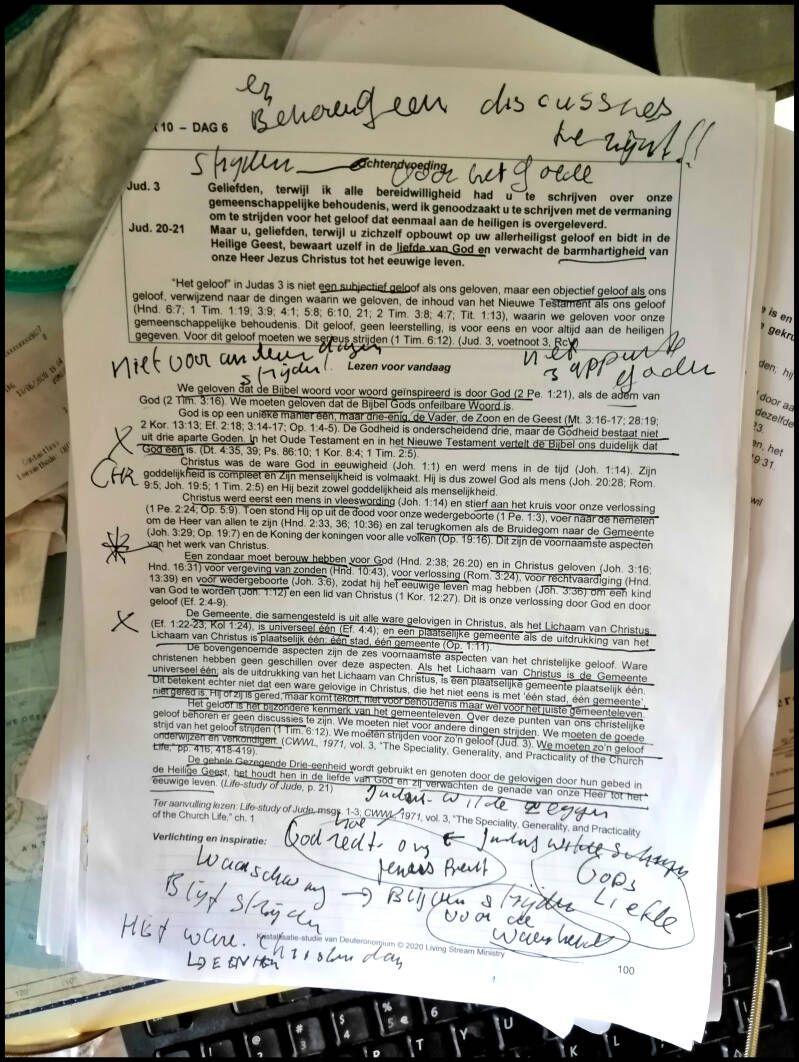 en
Behoren geen discussies
te zijn!!
10 – DAG 6
strijden voor het goede
chtendvoeding
Jud. 3 Geliefden, terwijl ik alle bereidwilligheid had u te schrijven over onze
gemeenschappelijke behoudenis, werd ik genoodzaakt u te schrijven met de vermaning
om te strijden voor het geloof dat eenmaal aan de heiligen is overgeleverd.
Jud. 20-21 Maar u, geliefden, terwijl u zichzelf opbouwt op uw allerheiligst geloof en bidt in de
Heilige Geest, bewaart uzelf in de liefde van God en verwacht de barmhartigheid van
onze Heer Jezus Christus tot het eeuwige leven.
"Het geloof" in Judas 3 is niet een subjectief geloof als ons geloven, maar een objectief geloof als ons
geloof, verwijzend naar de dingen waarin we geloven, de inhoud van het Nieuwe Testament als ons geloof
(Hnd. 6:7; 1 Tim. 1:19, 3:9; 4:1; 5:8; 6:10, 21; 2 Tim. 3:8; 4:7; Tit. 1:13), waarin we geloven voor onze
gemeenschappelijke behoudenis. Dit geloof, geen leerstelling, is voor eens en voor altijd aan de heiligen
gegeven. Voor dit geloof moeten we serieus strijden (1 Tim. 6:12). (Jud. 3, voetnoot 3, Rcv
niet voor andere dingen
strijden!
Lezen voor vandaag
niet
3 apparte
goden
We geloven dat de Bijbel woord voor woord geïnspireerd is door God (2 Pe. 1:21), als de adem van
God (2 Tim. 3:16). We moeten geloven dat de Bijbel Gods onfeilbare Woord is.
God is op een unieke manier één, maar drie-enig, de Vader, de Zoon en de Geest (Mt. 3:16-17; 28:19;
2 Kor. 13:13; Ef. 2:18; 3:14-17; Op. 1:4-5). De Godheid is onderscheidend drie, maar de Godheid bestaat niet
uit drie aparte Goden. In het Oude Testament en in het Nieuwe Testament vertelt de Bijbel ons duidelijk dat
God één is. (Dt. 4:35, 39; Ps. 86:10; 1 Kor. 8:4; 1 Tim. 2:5).
X
Christus was de ware God in eeuwigheid (Joh. 1:1) en werd mens in de tijd (Joh. 1:14). Zijn
goddelijkheid is compleet en Zijn menselijkheid is volmaakt. Hij is dus zowel God als mens (Joh. 20:28; Rom.
9:5; Joh. 19:5; 1 Tim. 2:5) en Hij bezit zowel goddelijkheid als menselijkheid.
CHR
Christus werd eerst een mens in vleeswording (Joh. 1:14) en stierf aan het kruis voor onze verlossing
(1 Pe. 2:24; Op. 5:9). Toen stond Hij op uit de dood voor onze wedergeboorte (1 Pe. 1:3), voer naar de hemelen
om de Heer van allen te zijn (Hnd. 2:33, 36; 10:36) en zal terugkomen als de Bruidegom naar de Gemeente
(Joh. 3:29; Op. 19:7) en de Koning der koningen voor alle volken (Op. 19:16). Dit zijn de voornaamste aspecten
van het werk van Christus.
Een zondaar moet berouw hebben voor God (Hnd. 2:38; 26:20) en in Christus geloven (Joh. 3:16;
Hnd. 16:31) voor vergeving van zonden (Hnd. 10:43), voor verlossing (Rom. 3:24), voor rechtvaardiging (Hnd.
13:39) en voor wedergeboorte (Joh. 3:6), zodat hij het eeuwige leven mag hebben (Joh. 3:36) om een kind
van God te worden (Joh. 1:12) en een lid van Christus (1 Kor. 12:27). Dit is onze verlossing door God en door
geloof (Ef. 2:4-9).
X
De Gemeente, die samengesteld is uit alle ware gelovigen in Christus, als het Lichaam van Christus
(Ef. 1:22-23; Kol 1:24), is universeel één (Ef. 4:4); en een plaatselijke gemeente als de uitdrukking van het
Lichaam van Christus is plaatselijk één: één stad, één gemeente (Op. 1:11).
De bovengenoemde aspecten zijn de zes voornaamste aspecten van het christelijke geloof. Ware
christenen hebben geen geschillen over deze aspecten. Als het Lichaam van Christus is de Gemeente
universeel één; als de uitdrukking van het Lichaam van Christus, is een plaatselijke gemeente plaatselijk één.
Dit betekent echter niet dat een ware gelovige in Christus, die het niet eens is met 'één stad, één gemeente',
niet gered is. Hij of zij is gered, maar komt tekort, niet voor behoudenis maar wel voor het juiste gemeenteleven.
Het geloof is het bijzondere kenmerk van het gemeenteleven. Over deze punten van ons christelijke
geloof behoren er geen discussies te zijn. We moeten niet voor andere dingen strijden. We moeten de goede
strijd van het geloof strijden (1 Tim. 6:12). We moeten strijden voor zo'n geloof (Jud. 3). We moeten zo'n geloof
onderwijzen en verkondigen. (CWWL, 1971, vol. 3, "The Speciality, Generality, and Practicality of the Church
Life," pp. 416, 418-419).
De gehele Gezegende Drie-eenheid wordt gebruikt en genoten door de gelovigen door hun gebed in
de Heilige Geest, het houdt hen in de liefde van God en zij verwachten de genade van onze Heer tot het
eeuwige leven. (Life-study of Jude, p. 21)
Judas wilde zeggen
Ter aanvulling lezen: Life-study of Jude, msgs. 1-3; CWWL, 1971, vol. 3, "The Speciality, Generality, and Practicality
of the Church Life," ch. 1
Verlichting en inspiratie:
hoe
God redt ons
Judas wilde
Gods
Liefde
Waarschuwing
Blijf strijden → Blijven strijden
voor de
waarheid
Het ware
Kristallisatie-studie van Deuteronomium © 2020 Living Stream Ministry
100